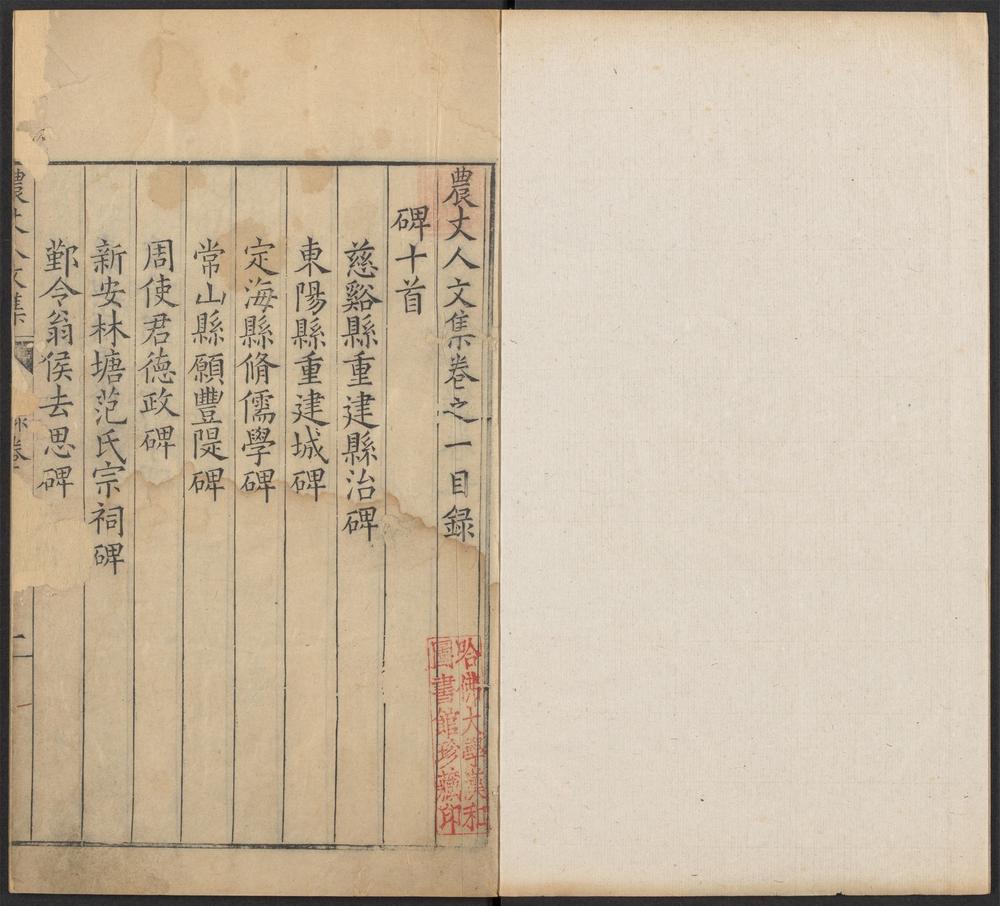 農丈人文集卷之一目録
碑十首
慈谿縣重建縣治碑
東陽縣重建城碑
定海縣脩儒學碑
常山縣願豐隄碑
周使君德政碑
新安林塘范氏宗祠碑
鄞令翁侯去思碑
農丈人文集
卷
哈佛大學漢和
圖書館珍藏印